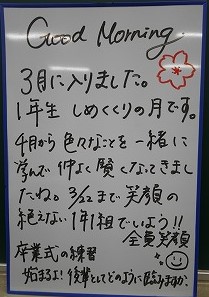 Good Morning.
3月に入りました。
1年生 しめくくりの月です。
4月から色々なことを一緒に
学んで 仲よく賢くなってきまし
たね。3/22まで笑顔の
絶えない1年1組でいよう!!
全員笑顔
卒業式の練習
始まるよ!後輩としてどのように臨みますか。